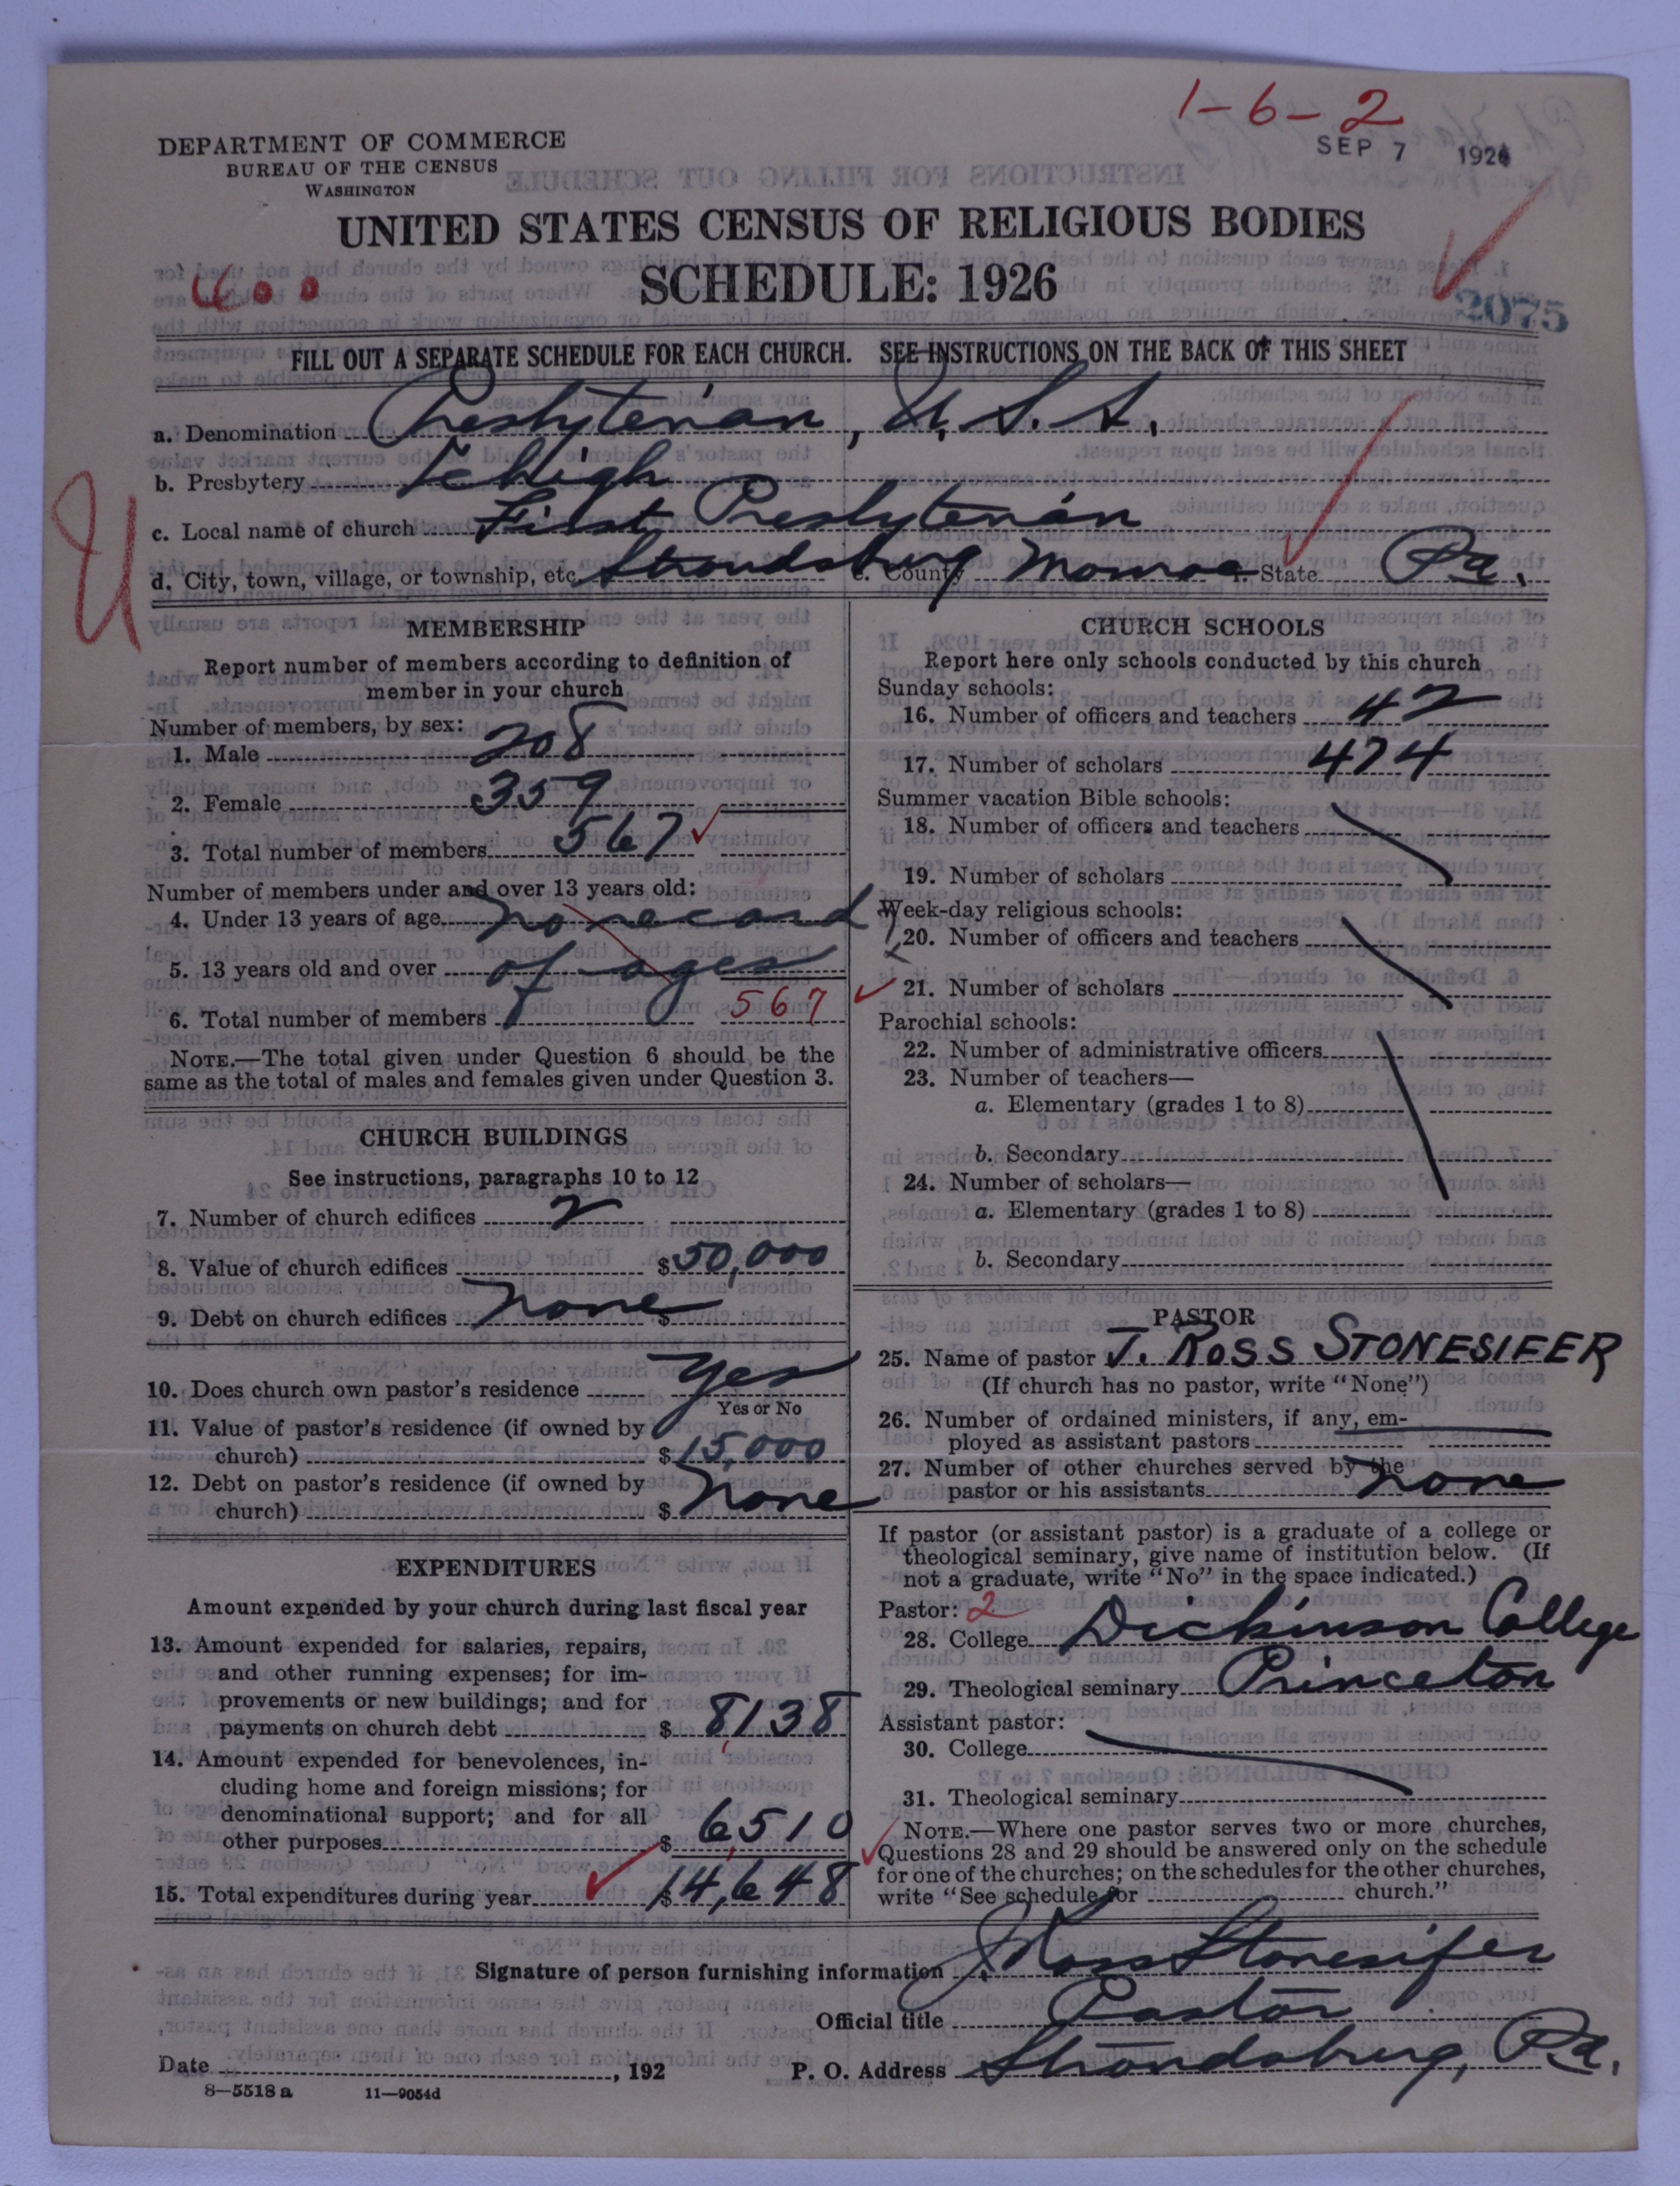 1-6-2
SEP 7 1926
DEPARTMENT OF COMMERCE
BUREAU OF THE CENSUS
WASHINGTON
UNITED STATES CENSUS OF RELIGIOUS BODIES
SCHEDULE: 1926
600
2075
FILL OUT A SEPARATE SCHEDULE FOR EACH CHURCH. SEE INSTRUCTIONS ON THE BACK OF THIS SHEET
a. Denomination Presbyterian, U.S.A.
b. Presbytery Lehigh
c. Local name of church First Presbyterian
d. City, town, village, or township, etc. Stroudsburg e. County Monroe f. State Pa.
MEMBERSHIP
Report number of members according to definition of
member in your church
Number of members, by sex:
1. Male 208
2. Female 359
3. Total number of members 567
Number of members under and over 13 years old:
4. Under 13 years of age no record
5. 13 years old and over of ages
6. Total number of members 567
NOTE.—The total given under Question 6 should be the
same as the total of males and females given under Question 3.
CHURCH BUILDINGS
See instructions, paragraphs 10 to 12
7. Number of church edifices 2
8. Value of church edifices $50,000
9. Debt on church edifices $ none
10. Does church own pastor's residence yes
Yes or No
11. Value of pastor's residence (if owned by
church) $15,000
12. Debt on pastor's residence (if owned by
church) $ none
EXPENDITURES
Amount expended by your church during last fiscal year
13. Amount expended for salaries, repairs,
and other running expenses; for im-
provements or new buildings; and for
payments on church debt $ 8,138
14. Amount expended for benevolences, in-
cluding home and foreign missions; for
denominational support; and for all
other purposes $ 6,510
15. Total expenditures during year $14,648
CHURCH SCHOOLS
Report here only schools conducted by this church
Sunday schools:
16. Number of officers and teachers 42
17. Number of scholars 474
Summer vacation Bible schools:
18. Number of officers and teachers
19. Number of scholars
Week-day religious schools:
20. Number of officers and teachers
21. Number of scholars
Parochial schools:
22. Number of administrative officers
23. Number of teachers—
a. Elementary (grades 1 to 8)
b. Secondary
24. Number of scholars—
a. Elementary (grades 1 to 8)
b. Secondary
PASTOR
25. Name of pastor J. ROSS STONESIFER
(If church has no pastor, write "None")
26. Number of ordained ministers, if any, em-
ployed as assistant pastors
27. Number of other churches served by the
pastor or his assistants none
If pastor (or assistant pastor) is a graduate of a college or
theological seminary, give name of institution below. (If
not a graduate, write "No" in the space indicated.)
Pastor: 2
28. College Dickinson College
29. Theological seminary Princeton
Assistant pastor:
30. College
31. Theological seminary
NOTE.—Where one pastor serves two or more churches,
Questions 28 and 29 should be answered only on the schedule
for one of the churches; on the schedules for the other churches,
write "See schedule for church."
Signature of person furnishing information J. Ross Stonesifer
Official title Pastor
Date , 192 P. O. Address Stroudsburg, Pa.
8—5518 a 11—9054d